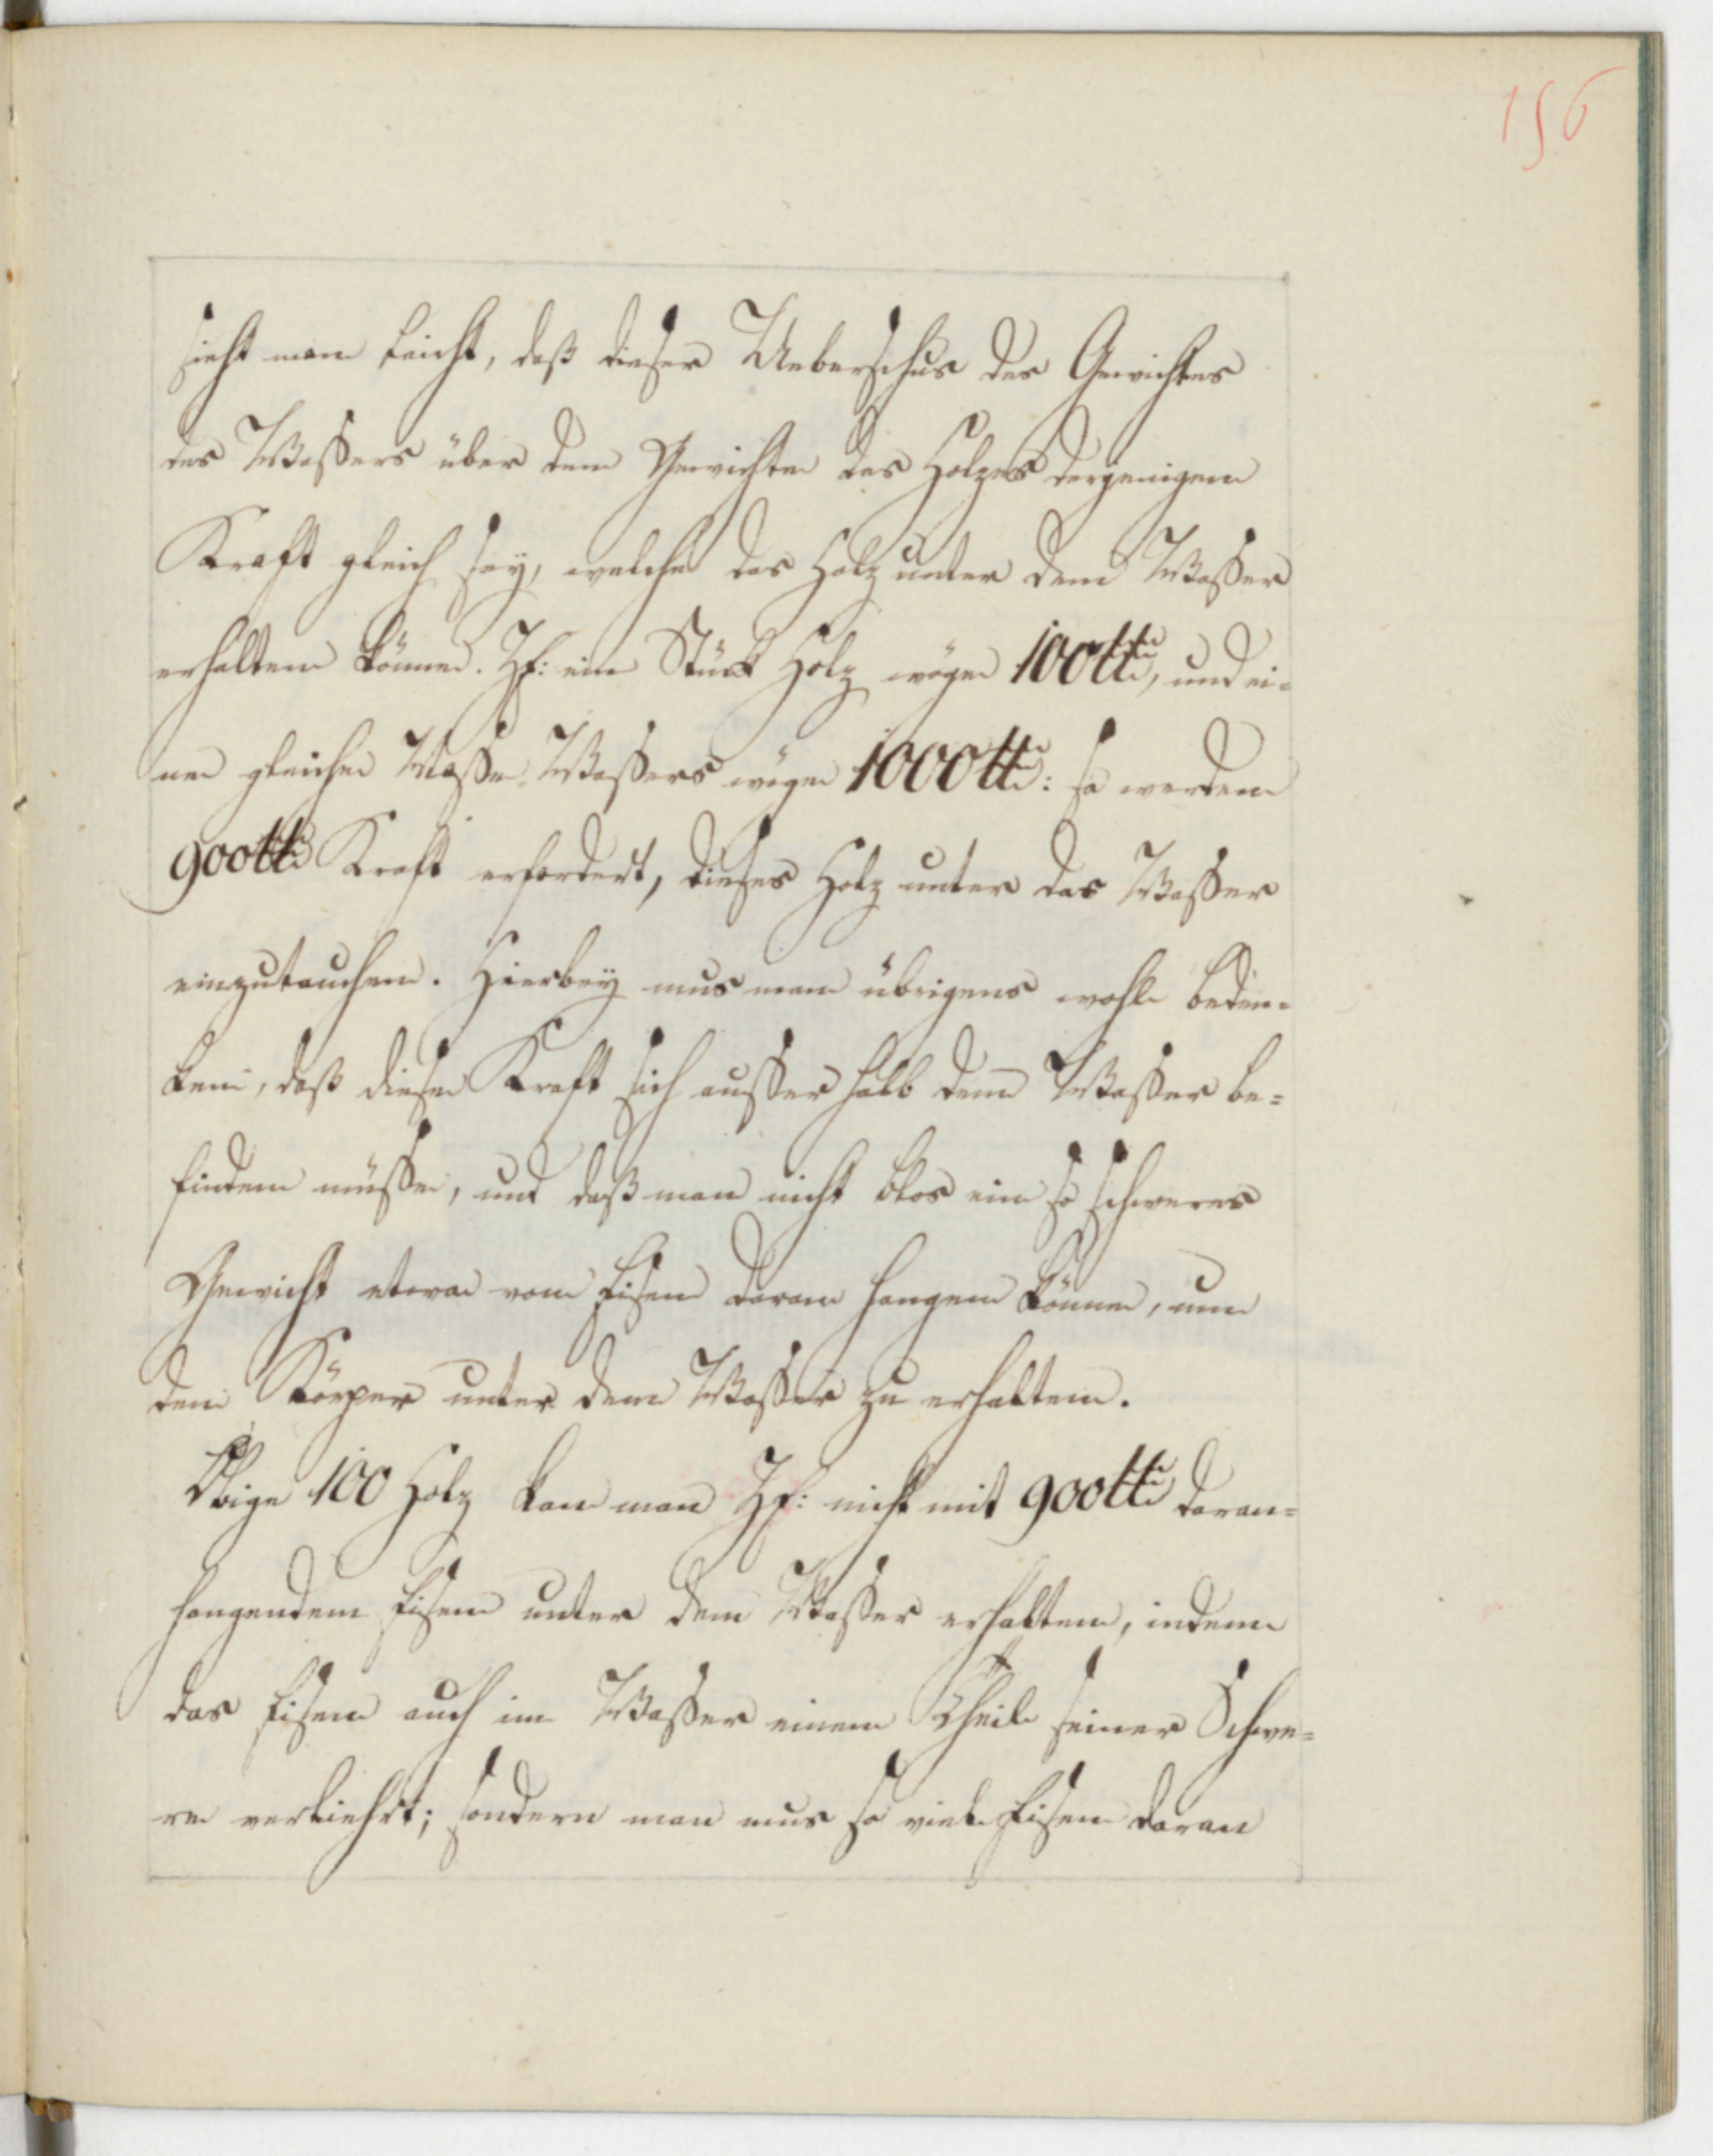 156
sieht man leicht, daß dieser Ueberschus des Gewichtes
des Waßers über dem Gewichte des Holzes derjenigen
Kraft gleich sey, welche das Holz unter dem Waßer
erhalten könne. Zf: ein Stück Holz wöge 100 ℔, und ei-
ne gleiche Maße Waßers wöge 1000 ℔: so werden
900 ℔ Kraft erfordert, dieses Holz unter das Waßer
einzutauchen. Hierbey mus man übrigens wohl beden-
ken, daß diese Kraft sich ausser halb dem Waßer be-
finden müsse, und daß man nicht blos ein so schweres
Gewicht etwa vom Eisen daran hangen könne, um
den Körper unter dem Waßer zu erhalten.
Obige 100 Holz kan man Zf: nicht mit 900 ℔ daran-
hangendem Eisen unter dem Waßer erhalten, indem
das Eisen auch im Waßer einen Theil seiner Schwe-
re verliehrt; sondern man mus so viel Eisen daran